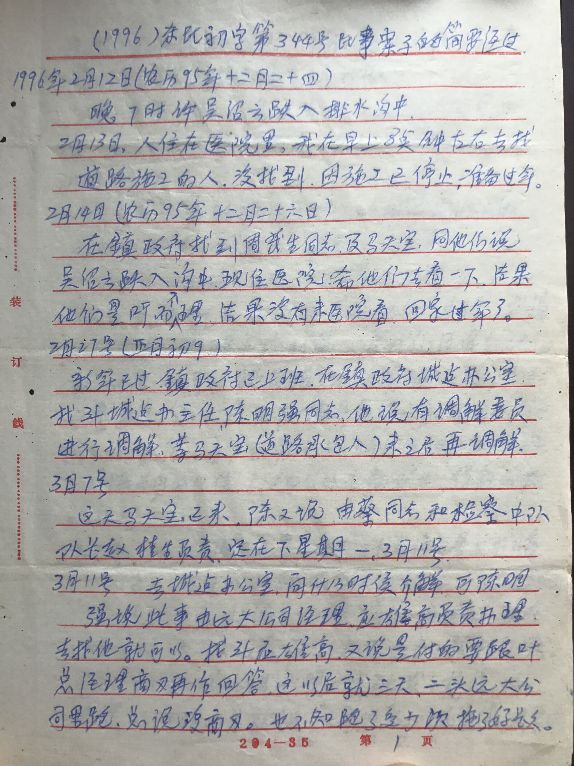 (1996)东民初字第344号民事案子的简要经过
1996年2月12日(农历95年十二月二十四)
晚7时许吴绍云跌入排水沟中.
2月13日,人住在医院里,我在早上8点钟左右去找
道路施工的人,没找到,因施工已停止,准备过年。
2月14日(农历95年十二月二十六日)
在鎮政府找到周茂生同志及马天宝,同他们说
吴绍云跌入沟中,现住医院,希他们去看一下,结果
他们是听而不理,结果没有来医院看,回家过年了。
2月27号(正月初9)
新年已过鎮政府已上班,在鎮政府城建办公室
找到城建办主任,陈明强同志,他说,有调解委员
进行调解,等马天宝(道路承包人)来之后再调解.
3月7号
这天马天宝已来,陈又说由蔡同志和检察中队
队长赵桂生负责,定在下星期一,3月11号.
3月11号 去城建办公室,问什么时候介解,可陈明
强说此事由远大公司经理,应雄高负责办理.
去找他就可以。找到应雄高又说是付的要跟叶
总经理商习再作回答,这以后就三天,二头远大公
司里跑,总说没商习。也不知跑了多少次,拖了好长久.
装
订
线
294-35 第 1 页